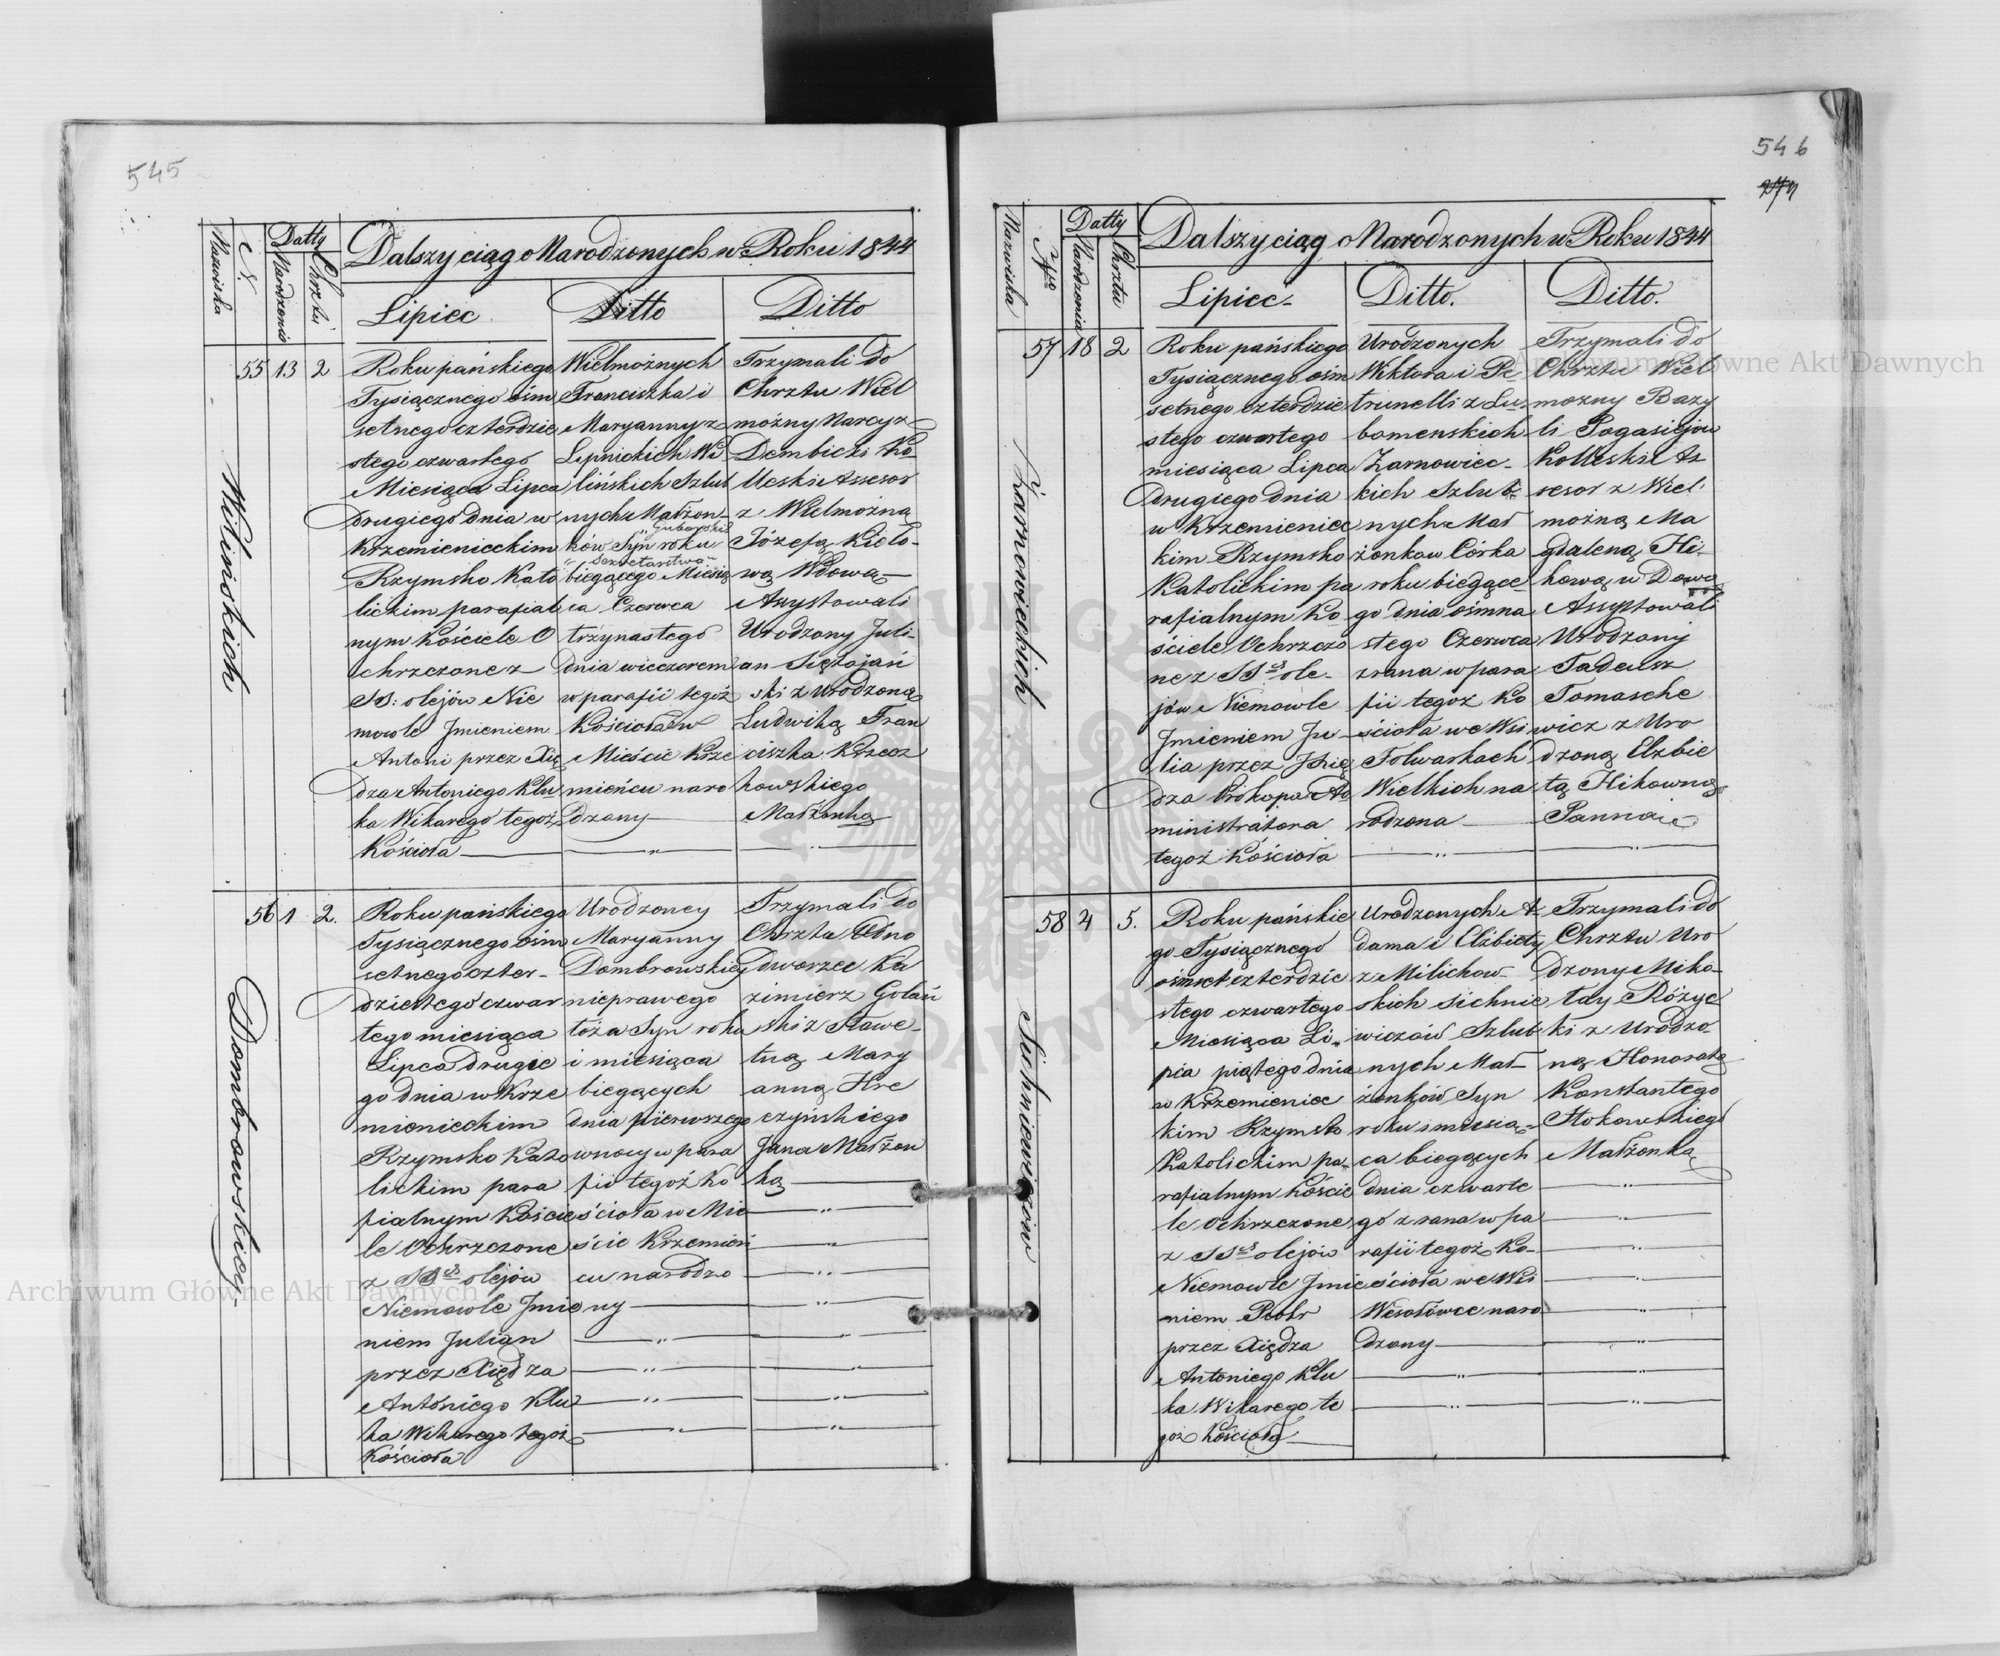 545
Nazwiska
N.
Datty
Narodzenia
Chrztu
Dalszy ciąg Narodzonych w Roku 1844
Lipiec
Ditto
Ditto
Wilińskich
55 13 2
Roku pańskiego
Tysiącznego ośm
setnego czterdzie
stego czwartego
Miesiąca Lipca
drugiego dnia w
Krzemienieckim
Rzymsko Kato
lickim parafial
nym Kościele O
chrzczone z
SS: olejów Nie
mowle Jmieniem
Antoni przez Xię
dza Antoniego Klu
ka Wikarego tegoż
Kościoła
Wielmożnych
Franciszka i
Maryanny z
Lipnickich Wi
lińskich Szlub
nych Małżon-
"Guberski
ków Syn roku
"Sekretarstwo"
biegącego Miesią
ca Czerwca
trzynastego
dnia wieczorem
w parafii tegoż
Kościoła w
Mieście Krze
mieńcu naro
dzony
Trzymali do
Chrztu Wiel
możny Narcyz
Dembicki Ko
lleski Assesor
z Wielmożną
Józefą Kieło-
wą Wdową
Assystowali
Urodzony Juli-
an Siętojań
ski z Urodzoną
Ludwiką Fran
ciszka Krzecz
kowskiego
Małżonką
Dombrowskiey
56 1 2.
Roku pańskiego
Tysiącznego ośm
setnego czter-
dziestego czwar
tego miesiąca
Lipca drugie
go dnia w Krze
mienieckim
Rzymsko Kato
lickim para
fialnym Koście
le Ochrzczone
z SS.ch olejów
Niemowle Jmie
niem Julian
przez Xiędza
Antoniego Klu
ka Wikarego tegoż
Kościoła
Urodzoney
Maryanny
Dombrowskiej
nieprawego
łoża Syn roku
i miesiąca
biegących
dnia pierwszego
w nocy w para
fii tegoż Ko
ścioła w Mie
ście Krzemień
cu narodzo
ny
Trzymali do
Chrztu Odno
dworzec Ka
zimierz Golań
ski z Sławe-
tną Mary
anną Hre
czyńskiego
Jana Małżon
ką
546
Nazwiska
Datty
Narodzenia
Chrztu
Dalszy ciąg Narodzonych w Roku 1844
Lipiec
Ditto.
Ditto.
Żarnowieckich
57 18 2
Roku pańskiego
Tysiącznego ośm
setnego czterdzie
stego czwartego
miesiąca Lipca
drugiego dnia
w Krzemieniec
kim Rzymsko
Katolickim pa
rafialnym Ko
ściele Ochrzczo
ne z SS.ch ole-
jów Niemowle
Jmieniem Ju-
lia przez Xię
dza Prokopa Ad
ministratora
tegoż Kościoła
Urodzonych
Wiktora i Pe-
trunelli z Lu-
bomenskich
Żarnowiec-
kich Szlub-
nych Mał
żonkow Córka
roku biegące-
go dnia ośmna
stego Czerwca
zrana w para
fii tegoż Ko
ścioła we Wsi
Folwarkach
Wielkich na
rodzona
Trzymali do
Chrztu Wiel
możny Bazy
li Pogasiejow
Kolleski As
sesor z Wiel
możną Ma
gdaleną Hi-
kową Wdową
Assystowali
Urodzony
Tadeusz
Tomasche
wicz z Uro
dzoną Elzbie
tą Hikowną
Panną
Sichniewiczów
58 4 5.
Roku pańskie
go Tysiącznego
ośmset czterdzie
stego czwartego
Miesiąca Li-
pca piątego dnia
w Krzemieniec
kim Rzymsko
Katolickim pa-
rafialnym Koście
le Ochrzczone
z SS.ch olejów
Niemowle Jmie
niem Piotr
przez Xiędza
Antoniego Klu
ka Wikarego te
goż Kościoła
Urodzonych A-
dama i Elżbiety
z Milichow-
skich Sichnie
wiczów Szlub
nych Mał-
żonków Syn
roku i miesią-
ca biegących
dnia czwarte
go z rana w pa
rafii tegoż Ko-
ścioła we Wsi
Wesołówce naro
dzony
Trzymali do
Chrztu Uro
dzony Miko-
łay Różyc
ki z Urodzo-
ną Honoratą
Konstantego
Stokowskiego
Małżonką
Archiwum Główne Akt Dawnych
Archiwum Główne Akt Dawnych